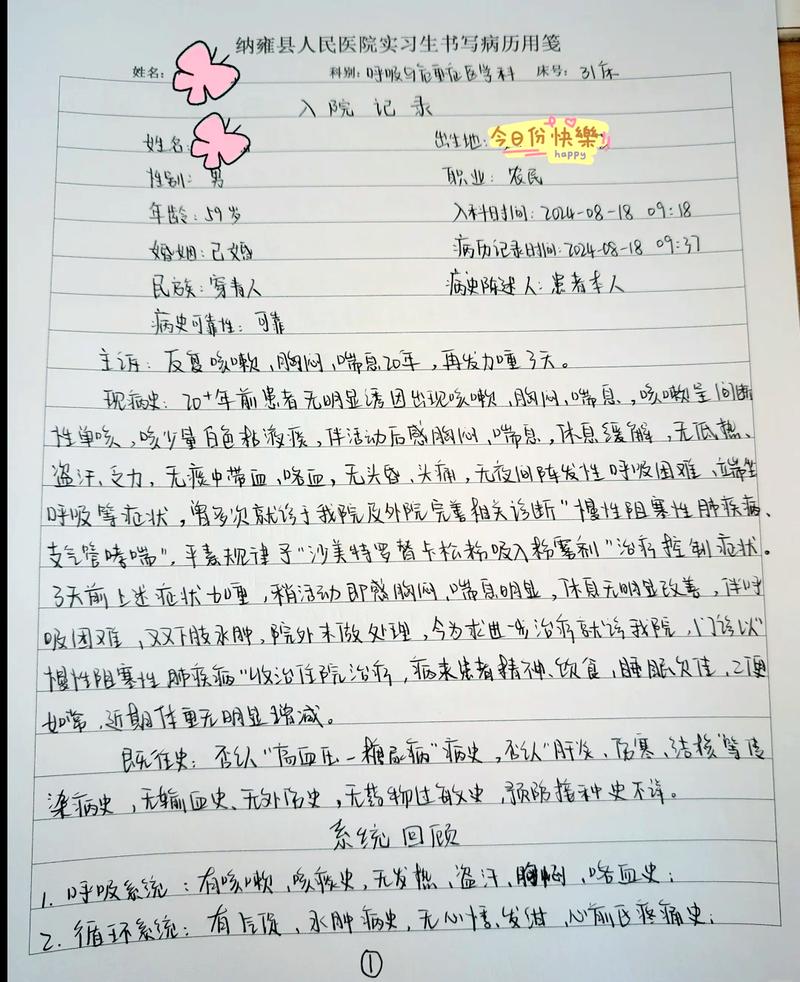 纳雍县人民医院实习生书写病历用笺
姓名: 科别: 呼吸与危重症医学科 床号: 31床
入院记录
姓名 出生地: 今日份快樂 happy
性别: 男 职业: 农民
年龄: 59岁 入科时间: 2024-08-18 09:18
婚姻: 已婚 病历记录时间: 2024-08-18 09:37
民族: 穿青人 病史陈述人: 患者本人
病史可靠性: 可靠
主诉: 反复咳嗽、胸闷、喘息20年, 再发加重3天。
现病史: 20+年前患者无明显诱因出现咳嗽、胸闷、喘息, 咳嗽呈间断
性单咳, 咳少量白色粘液痰, 伴活动后感胸闷、喘息, 休息缓解, 无低热、
盗汗、乏力, 无痰中带血、咯血, 无头昏、头痛, 无夜间阵发性呼吸困难、端坐
呼吸等症状, 曾多次就诊于我院及外院完善相关诊断"慢性阻塞性肺疾病、
支气管哮喘", 平素规律予"沙美特罗替卡松粉吸入粉雾剂"治疗控制症状。
3天前上述症状加重, 稍活动即感胸闷、喘息明显, 休息无明显改善, 伴呼
吸困难, 双下肢水肿, 院外未做处理, 今为求进一步治疗就诊我院, 门诊以"
慢性阻塞性肺疾病"收治住院治疗, 病来患者精神、饮食、睡眠欠佳, 二便
如常, 近期体重无明显增减。
既往史: 否认"高血压、糖尿病"病史, 否认"肝炎、伤寒、结核"等传
染病史, 无输血史、无外伤史, 无药物过敏史, 预防接种史不详。
系统回顾
1. 呼吸系统: 有咳嗽、咳痰史, 无发热、盗汗、胸闷、咯血史;
2. 循环系统: 有气促、水肿病史, 无心悸、发绀、心前区疼痛史;
①